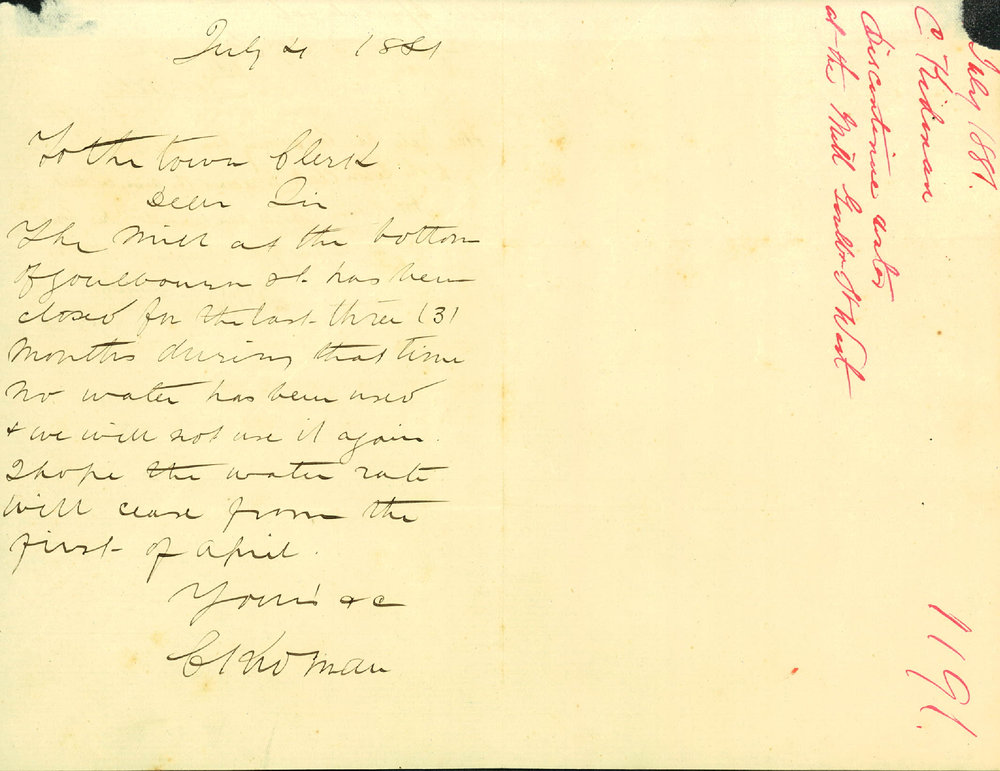 July 4 1881
To the town Clerk.
Dear Sir
The Mill at the bottom
of Goulbourn st. has been
closed for the last three (3)
Months during that time
no water has been used
& we will not use it again.
I hope the water rate
will cease from the
first of April.
Yours &c
C Kidman
July 1881.
C Kidman
Discontinue water
at the Mill Goulbn St West
1191.